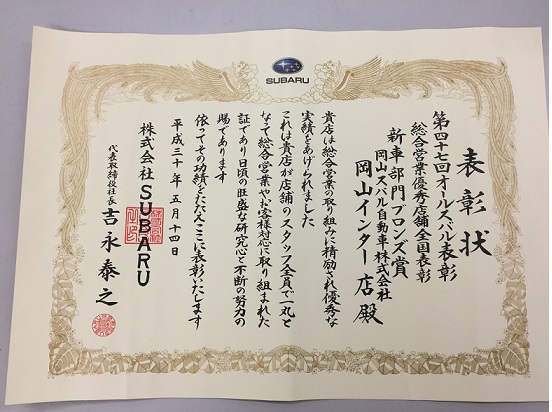 SUBARU
表彰状
第四十七回オールスバル表彰
総合営業優秀店舗全国表彰
新車部門ブロンズ賞
岡山スバル自動車株式会社
岡山インター店殿
貴店は総合営業の取り組みに精励され優秀な
実績をあげられました
これは貴店が店舗のスタッフ全員で一丸と
なって総合営業やお客様対応に取り組まれた
証であり日頃の旺盛な研究心と不断の努力の
賜であります
依ってその功績をたたえここに表彰いたします
平成三十年五月十四日
株式会社SUBARU
代表取締役社長 吉永泰之